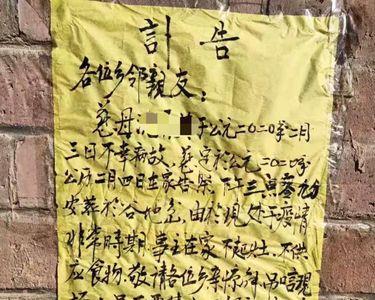 訃告
各位乡邻亲友：
慈母 于公元二〇二〇年二月
三日不幸病故，慈 于公元二〇二〇年
公历二月四日在家告祭，下午三点零九分
安葬於谷地 。由於现处于疫情
非常时期，事主在家不起灶，不供
应食物，敬请各位乡亲谅解，吊唁现